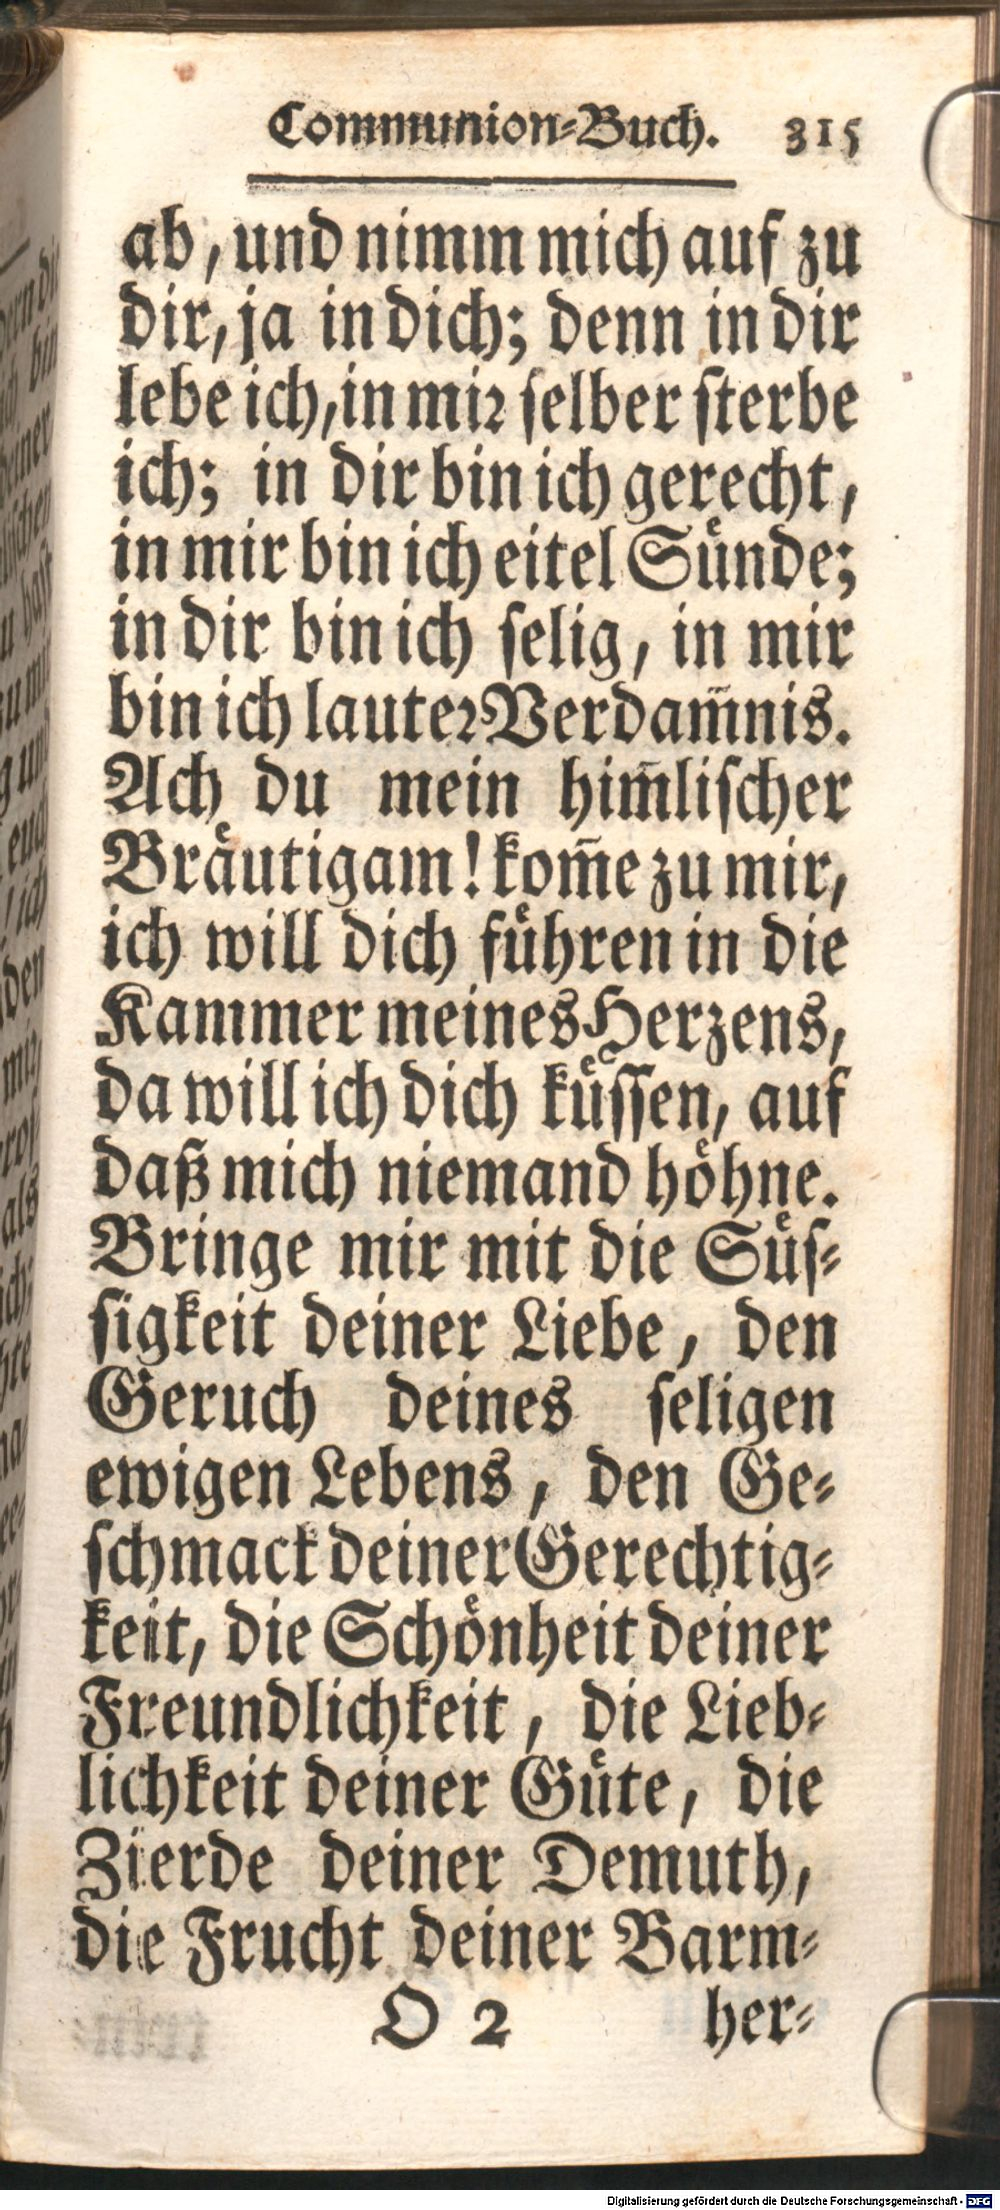 Communion-Buch. 315
ab, und nimm mich auf zu
dir, ja in dich; denn in dir
lebe ich, in miꝛ ſelber ſterbe
ich; in dir bin ich gerecht,
in mir bin ich eitel Suͤnde;
in dir bin ich ſelig, in mir
bin ich lauteꝛ Verdam̃nis.
Ach du mein him̃liſcher
Braͤutigam! kom̃e zu mir,
ich will dich fuͤhren in die
Kammer meines Herzens,
da will ich dich kuͤſſen, auf
daß mich niemand hoͤhne.
Bringe mir mit die Suͤſ-
ſigkeit deiner Liebe, den
Geruch deines ſeligen
ewigen Lebens, den Ge-
ſchmack deiner Gerechtig-
keit, die Schoͤnheit deiner
Freundlichkeit, die Lieb-
lichkeit deiner Guͤte, die
Zierde deiner Demuth,
die Frucht deiner Barm-
O 2 her-
Digitalisierung gefördert durch die Deutsche Forschungsgemeinschaft - DFG